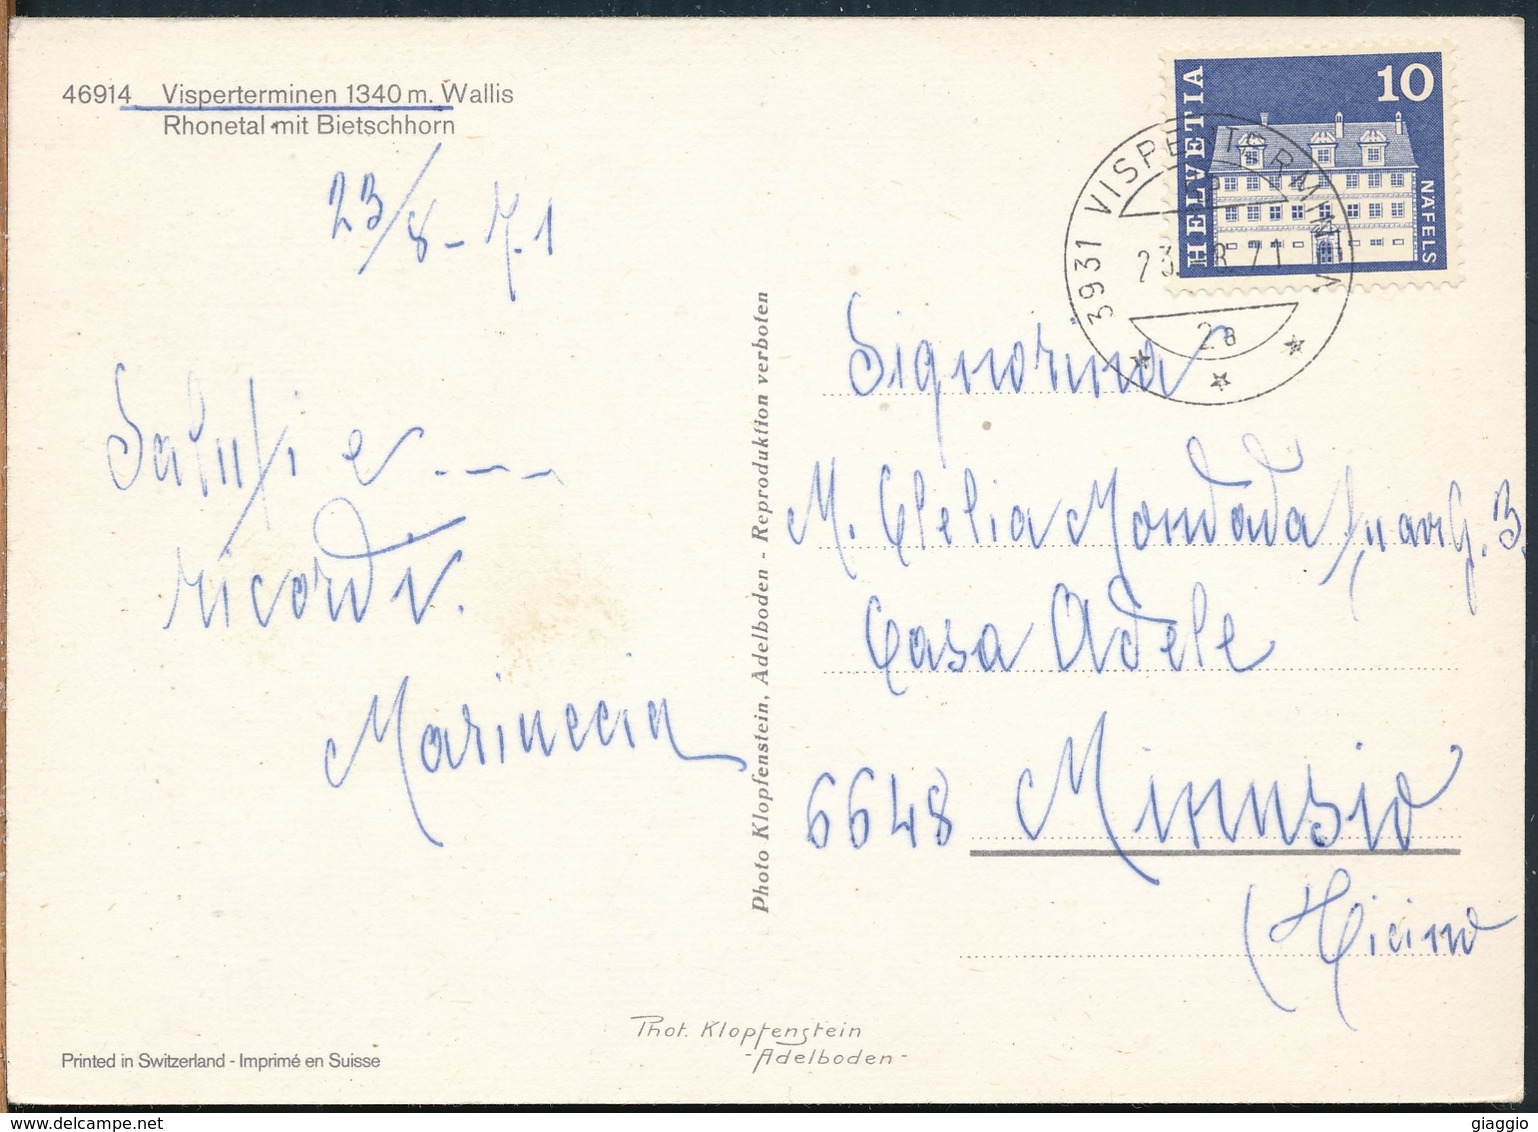 46914 Visperterminen 1340 m. Wallis
Rhonetal mit Bietschhorn
23/8-71
Saluti e ----
ricordi.
Marinccia
Photo Klopfenstein, Adelboden - Reproduktion verboten
HELVETIA
10
NÄFELS
3931 VISPERTERMINEN
23.-8.71
2a
Signorina
M. Clelia Mondada
Casa Adele
6648 Minusio
(Ticino
Phot. Klopfenstein
-Adelboden-
Printed in Switzerland - Imprimé en Suisse
www.delcampe.net
giaggio